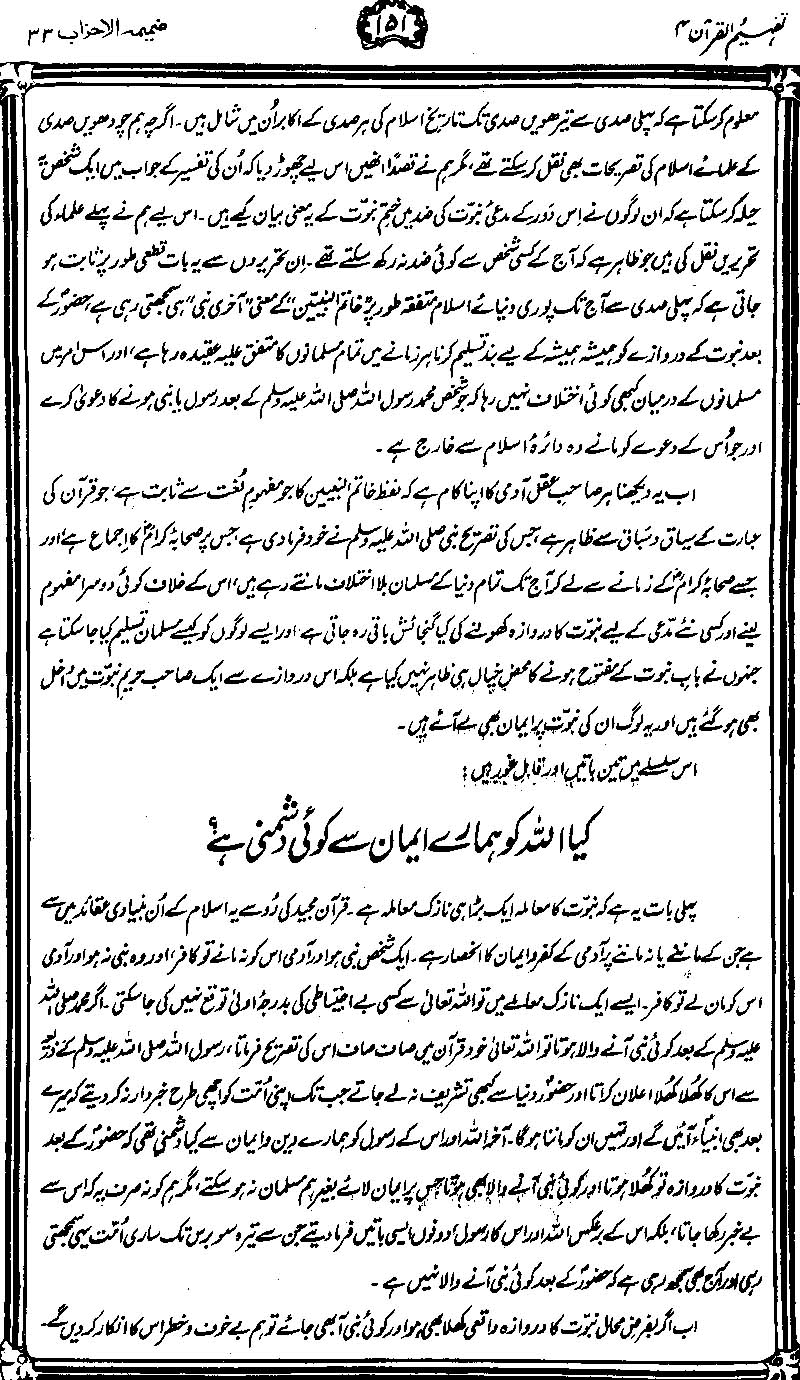 تفہیم القرآن ۴
۱۵۱
ضمیمہ الاحزاب ۳۳
معلوم کر سکتا ہے کہ پہلی صدی سے تیرھویں صدی تک تاریخ اسلام کی ہر صدی کے اکابر اُن میں شامل ہیں۔ اگرچہ ہم چودھویں صدی
کے علمائے اسلام کی تصریحات بھی نقل کر سکتے تھے، مگر ہم نے قصداً انھیں اس لیے چھوڑ دیا کہ اُن کی تفسیر کے جواب میں ایک شخص یہ
حیلہ کر سکتا ہے کہ ان لوگوں نے اِس دَور کے مدعیٔ نبوت کی ضد میں ختم نبوّت کے یہ معنی بیان کیے ہیں۔ اس لیے ہم نے پہلے علماء کی
تحریریں نقل کی ہیں جو ظاہر ہے کہ آج کے کسی شخص سے کوئی ضد نہ رکھ سکتے تھے۔ اِن تحریروں سے یہ بات قطعی طور پر ثابت ہو
جاتی ہے کہ پہلی صدی سے آج تک پوری دنیائے اسلام متفقہ طور پر "خاتم النبیین" کے معنی "آخری نبی" ہی سمجھتی رہی ہے، حضورؐ کے
بعد نبوت کے دروازے کو ہمیشہ ہمیشہ کے لیے بند تسلیم کرنا ہر زمانے میں تمام مسلمانوں کا متفق علیہ عقیدہ رہا ہے، اور اس امر میں
مسلمانوں کے درمیان کبھی کوئی اختلاف نہیں رہا کہ جو شخص محمد رسول اللہ صلی اللہ علیہ وسلم کے بعد رسول یا نبی ہونے کا دعویٰ کرے
اور جو اُس کے دعوے کو مانے وہ دائرۂ اسلام سے خارج ہے۔
اب یہ دیکھنا ہر صاحبِ عقل آدمی کا اپنا کام ہے کہ لفظ خاتم النبیین کا جو مفہوم لُغت سے ثابت ہے، جو قرآن کی
عبارت کے سیاق و سباق سے ظاہر ہے، جس کی تصریح نبی صلی اللہ علیہ وسلم نے خود فرما دی ہے، جس پر صحابۂ کرامؓ کا اِجماع ہے، اور
جسے صحابۂ کرامؓ کے زمانے سے لے کر آج تک تمام دنیا کے مسلمان بلا اختلاف مانتے رہے ہیں، اس کے خلاف کوئی دوسرا مفہوم
لینے اور کسی نئے مدعی کے لیے نبوّت کا دروازہ کھولنے کی کیا گنجائش باقی رہ جاتی ہے، اور ایسے لوگوں کو کیسے مسلمان تسلیم کیا جا سکتا ہے
جنہوں نے بابِ نبوت کے مفتوح ہونے کا محض خیال ہی ظاہر نہیں کیا ہے بلکہ اس دروازے سے ایک صاحب حریمِ نبوّت میں داخل
بھی ہو گئے ہیں اور یہ لوگ ان کی نبوّت پر ایمان بھی لے آئے ہیں۔
اس سلسلے میں تین باتیں اور قابلِ غور ہیں:
کیا اللہ کو ہمارے ایمان سے کوئی دشمنی ہے؟
پہلی بات یہ ہے کہ نبوّت کا معاملہ ایک بڑا ہی نازک معاملہ ہے۔ قرآن مجید کی رُو سے یہ اسلام کے اُن بنیادی عقائد میں سے
ہے جن کے ماننے یا نہ ماننے پر آدمی کے کفر و ایمان کا انحصار ہے۔ ایک شخص نبی ہو اور آدمی اس کو نہ مانے تو کافر، اور وہ نبی نہ ہو اور آدمی
اس کو مان لے تو کافر۔ ایسے ایک نازک معاملے میں تو اللہ تعالیٰ سے کسی بے احتیاطی کی بدرجۂ اولیٰ توقع نہیں کی جا سکتی۔ اگر محمد صلی اللہ
علیہ وسلم کے بعد کوئی نبی آنے والا ہوتا تو اللہ تعالیٰ خود قرآن میں صاف صاف اس کی تصریح فرماتا، رسول اللہ صلی اللہ علیہ وسلم کے ذریعہ
سے اس کا کھُلا کھُلا اعلان کراتا اور حضورؐ دنیا سے کبھی تشریف نہ لے جاتے جب تک اپنی اُمّت کو اچھی طرح خبردار نہ کر دیتے کہ میرے
بعد بھی انبیاءؑ آئیں گے اور تمہیں ان کو ماننا ہوگا۔ آخر اللہ اور اس کے رسول کو ہمارے دین و ایمان سے کیا دشمنی تھی کہ حضورؐ کے بعد
نبوّت کا دروازہ تو کھُلا ہوتا اور کوئی نبی آنے والا بھی ہوتا جس پر ایمان لائے بغیر ہم مسلمان نہ ہو سکتے، مگر ہم کو نہ صرف یہ کہ اس سے
بے خبر رکھا جاتا، بلکہ اس کے برعکس اللہ اور اس کا رسول، دونوں ایسی باتیں فرما دیتے جن سے تیرہ سو برس تک ساری اُمّت یہی سمجھتی
رہی اور آج بھی سمجھ رہی ہے کہ حضورؐ کے بعد کوئی نبی آنے والا نہیں ہے۔
اب اگر بفرضِ محال نبوّت کا دروازہ واقعی کھلا بھی ہو اور کوئی نبی آ بھی جائے تو ہم بے خوف و خطر اس کا انکار کر دیں گے۔